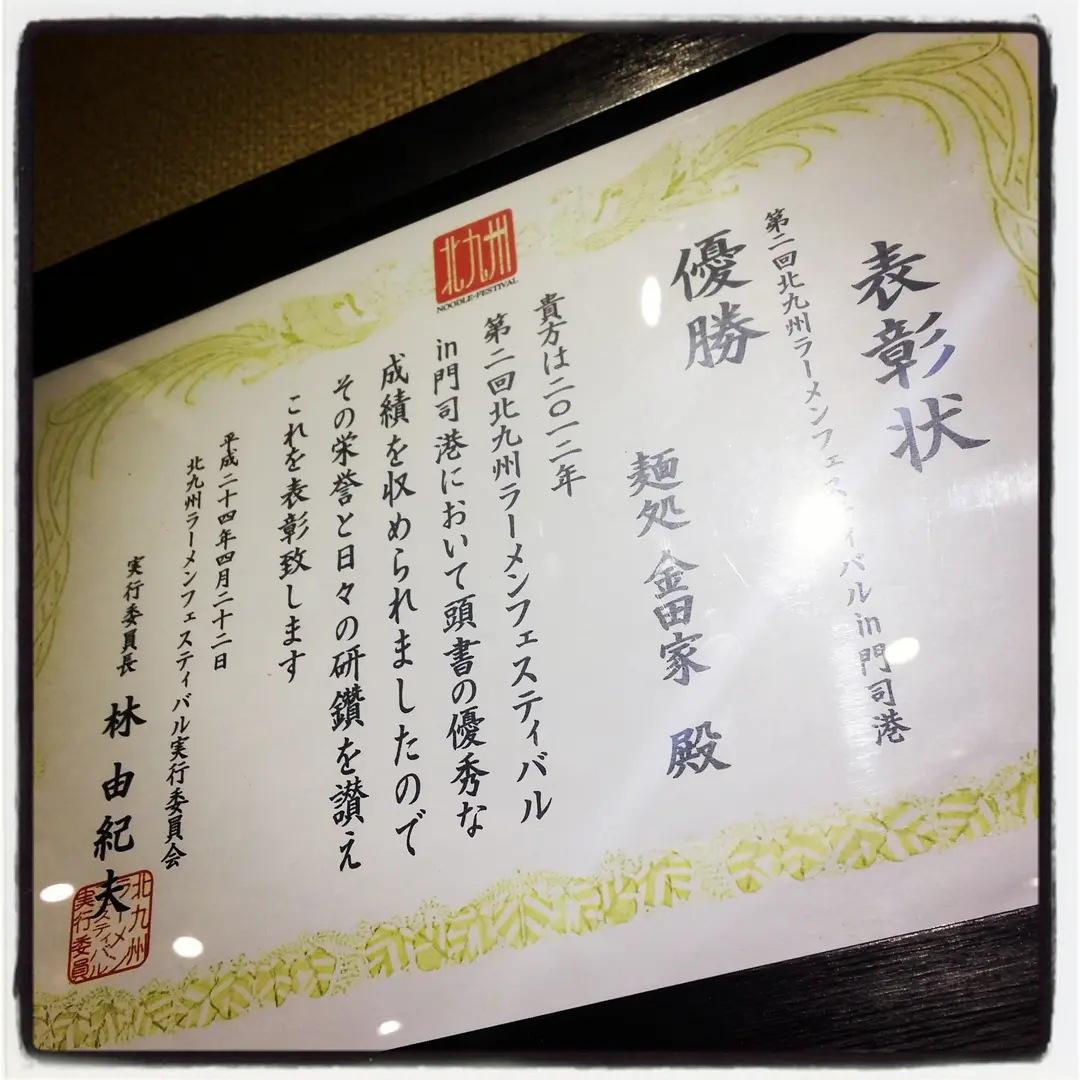 表彰状
第二回北九州ラーメンフェスティバルin門司港
優勝
麺処 金田家 殿
北九州
NOODLE-FESTIVAL
貴方は二〇一二年
第二回北九州ラーメンフェスティバル
in門司港において頭書の優秀な
成績を収められましたので
その栄誉と日々の研鑽を讃え
これを表彰致します
平成二十四年四月二十二日
北九州ラーメンフェスティバル実行委員会
実行委員長 林由紀夫
北九州
ラーメンフェ
スティバル
実行委員